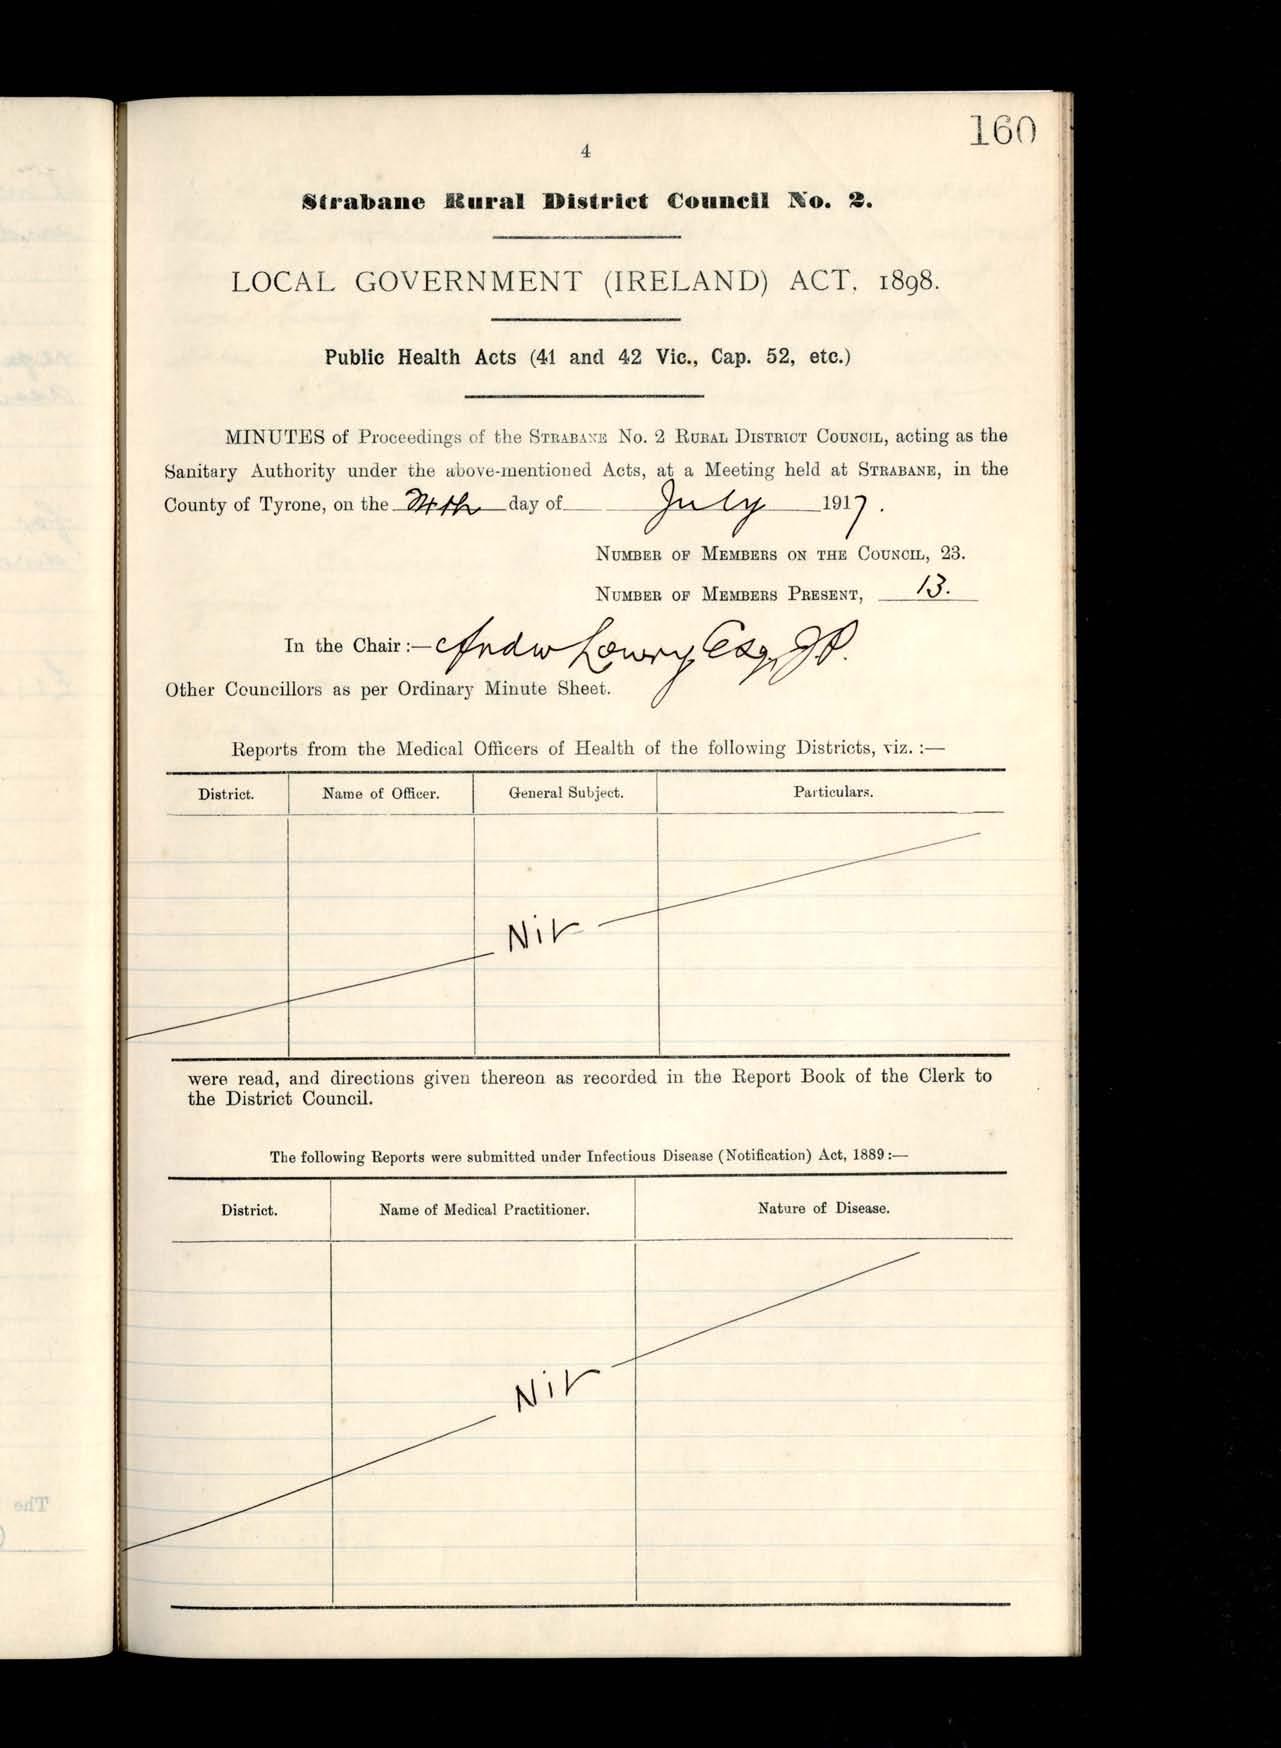 160
4
Strabane Rural District Council No. 2.
LOCAL GOVERNMENT (IRELAND) ACT, 1898.
Public Health Acts (41 and 42 Vic., Cap. 52, etc.)
MINUTES of Proceedings of the STRABANE No. 2 RURAL DISTRICT COUNCIL, acting as the
Sanitary Authority under the above-mentioned Acts, at a Meeting held at STRABANE, in the
County of Tyrone, on the day of July 1917.
NUMBER OF MEMBERS ON THE COUNCIL, 23.
NUMBER OF MEMBERS PRESENT, 13.
In the Chair :— Andw Lowry Esq, J.P.
Other Councillors as per Ordinary Minute Sheet.
Reports from the Medical Officers of Health of the following Districts, viz. :—
District. Name of Officer. General Subject. Particulars.
Nil
were read, and directions given thereon as recorded in the Report Book of the Clerk to
the District Council.
The following Reports were submitted under Infectious Disease (Notification) Act, 1889 :—
District. Name of Medical Practitioner. Nature of Disease.
Nil